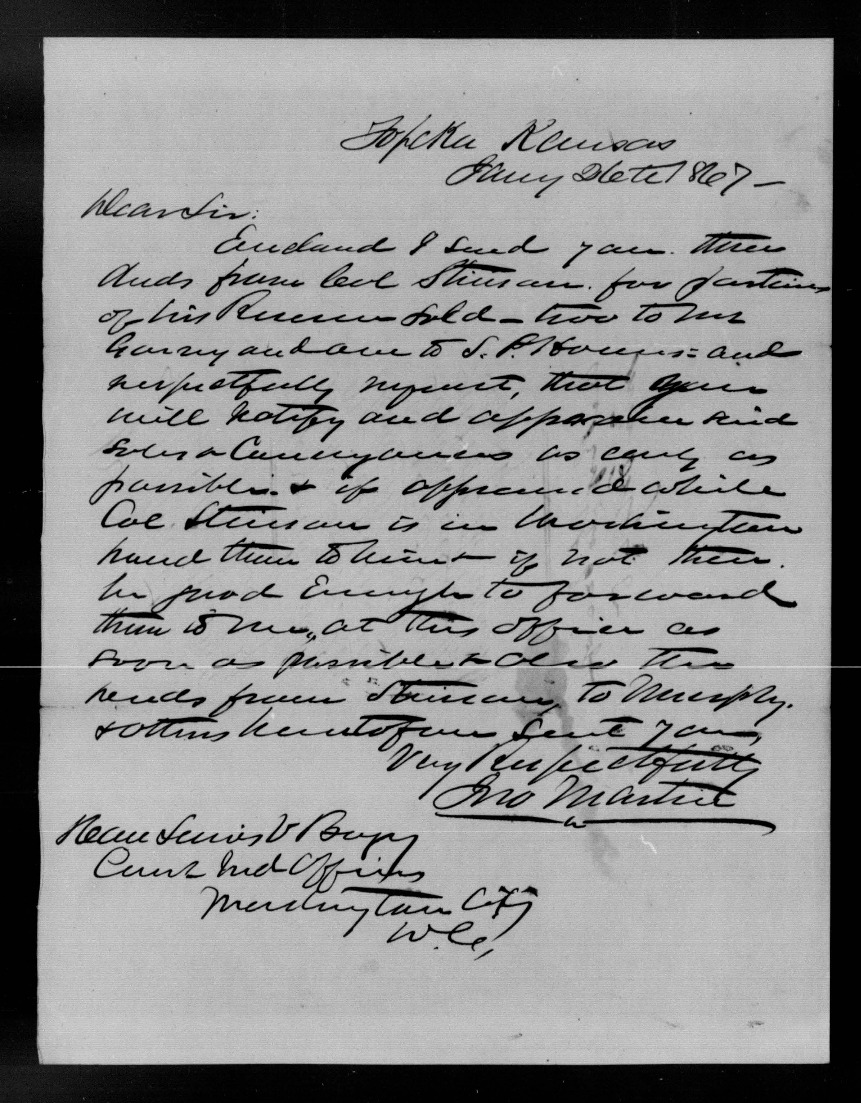 Topeka Kansas
Jany 26th 1867 –
Dear Sir:
Enclosed I send you three
deeds from Col Stinson for portions
of his Reserve sold – two to Mr
and one to S. P. – and
respectfully request, that you
will ratify and approve said
sales & Conveyances as early as
possible & if approved while
Col Stinson is in Washington
hand them to him & if not then
be good Enough to forward
them to me, at this office as
soon as possible & also the
deeds from Stinson to Murphy
& others heretofore sent you,
Very Respectfully
Jno Martin
Hon Lewis V Bogy
Comr Ind Office
Washington City
D.C.,